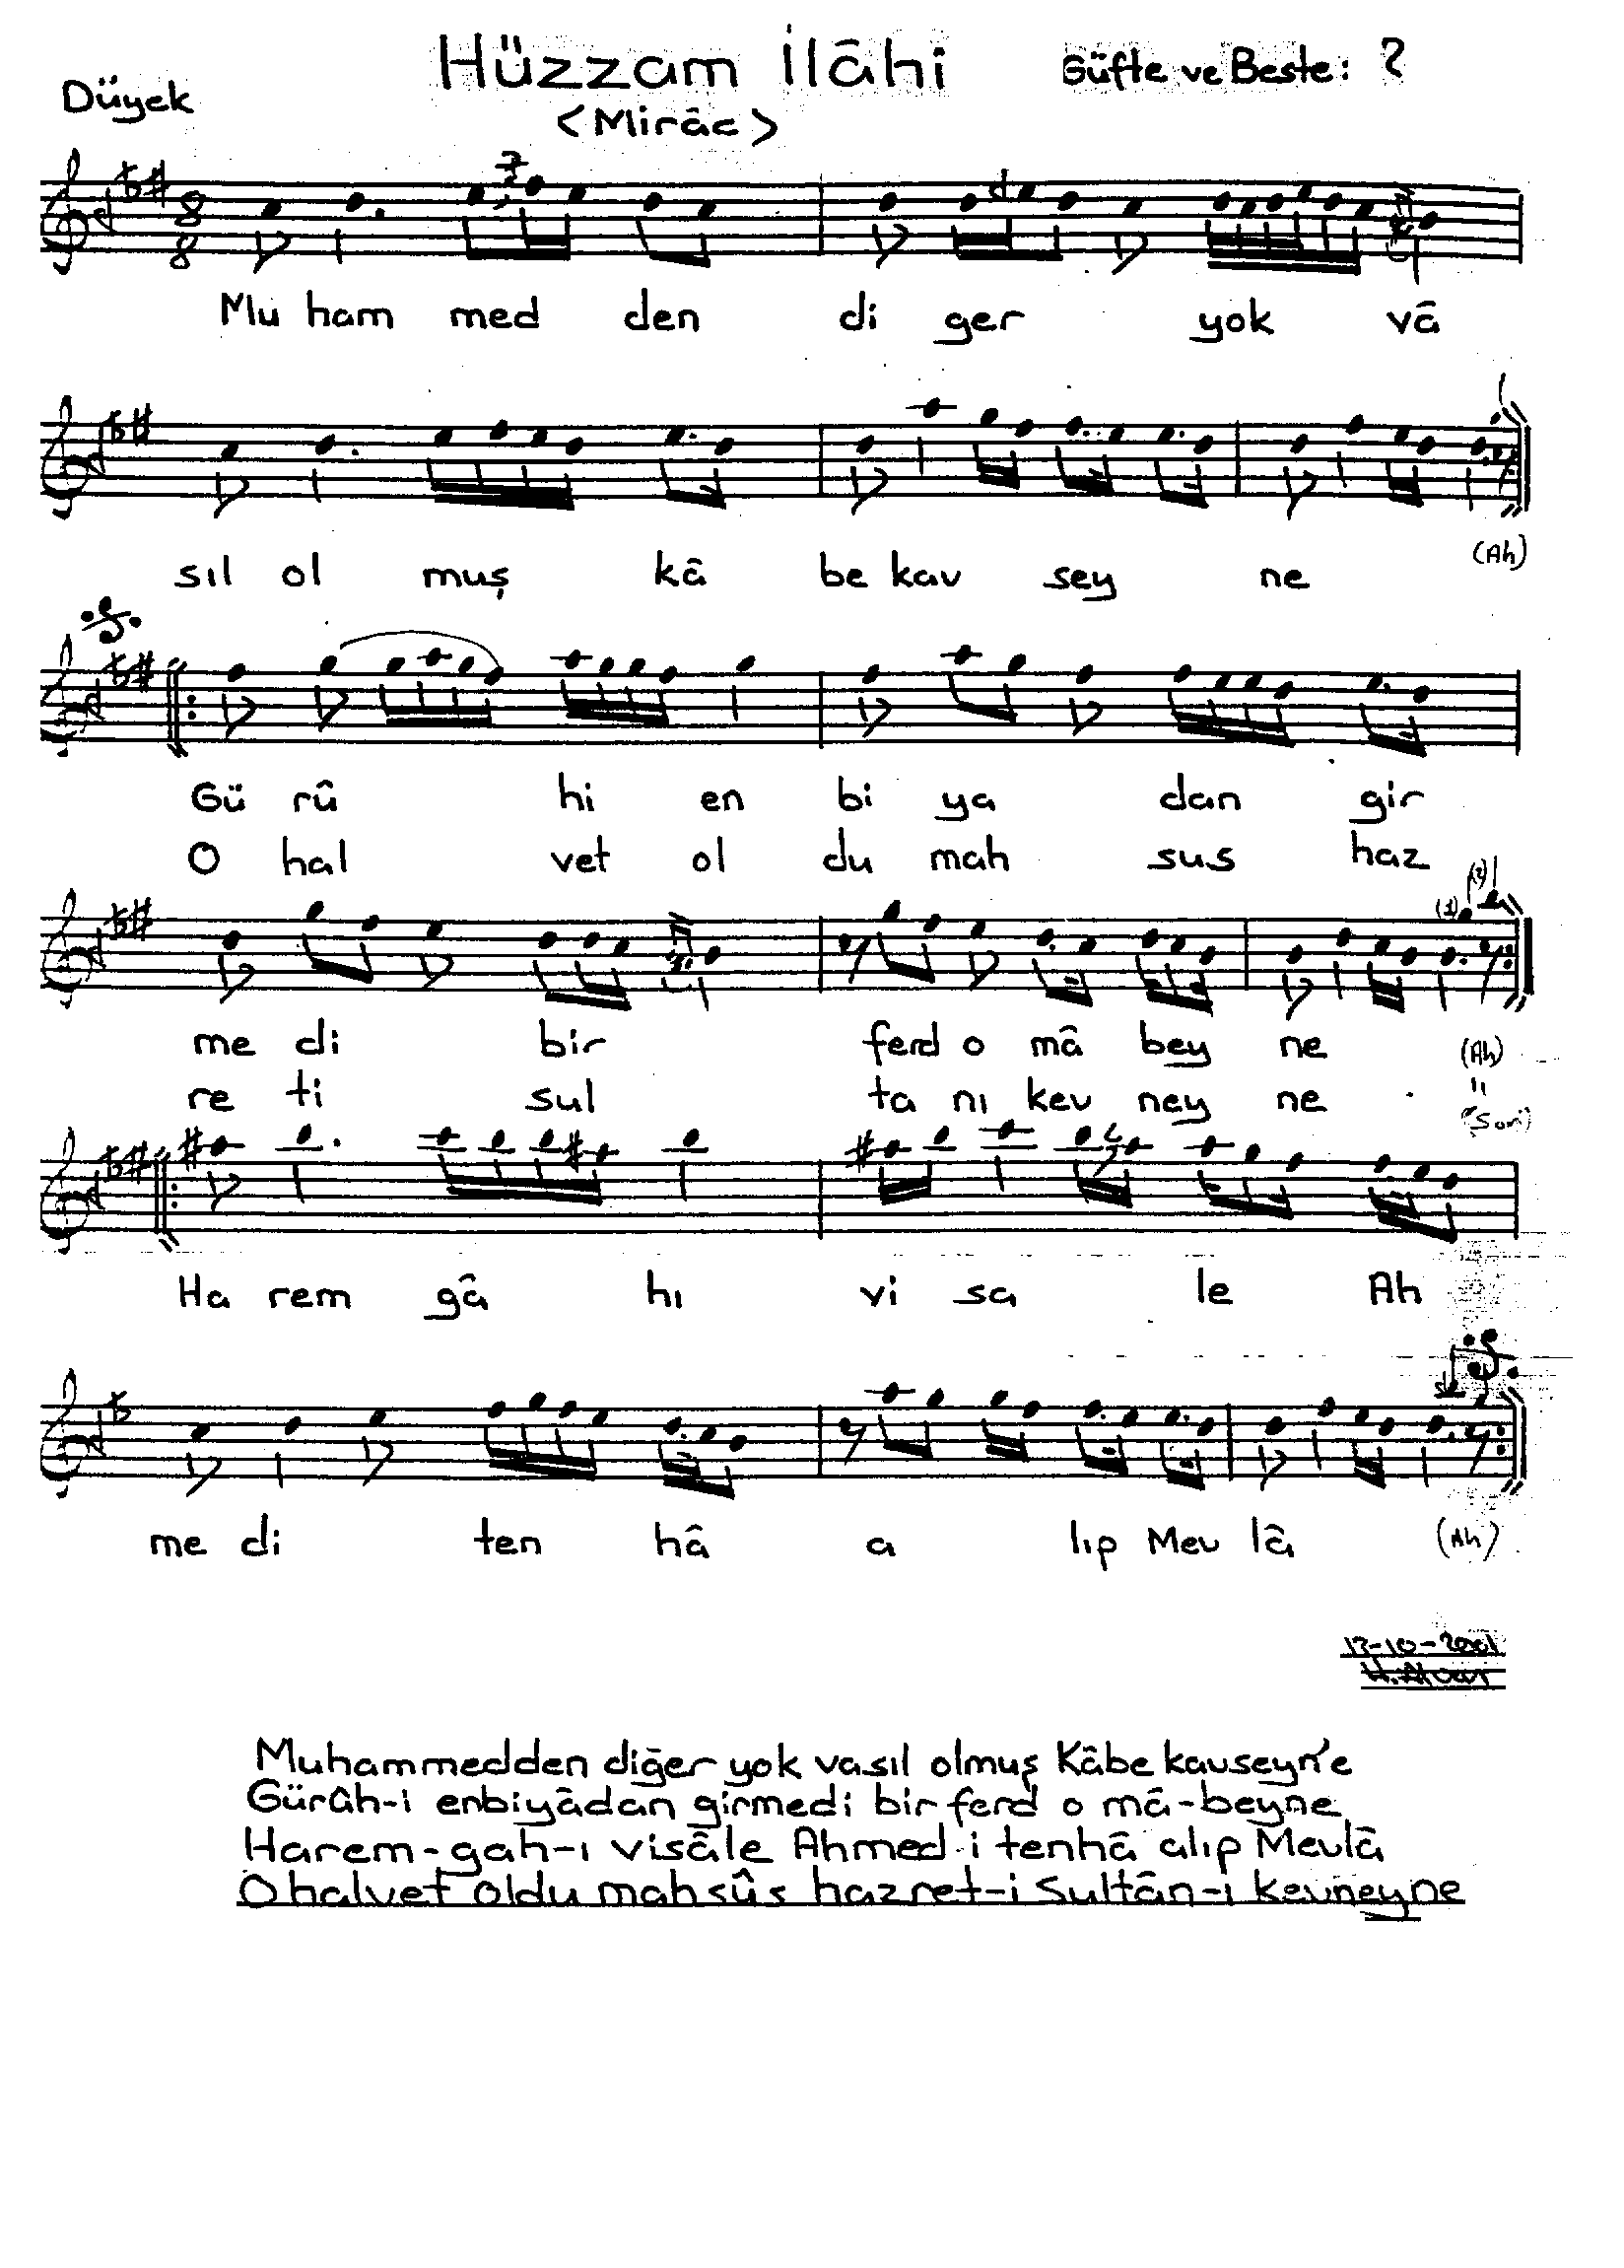 Hüzzam İlâhi
Güfte ve Beste: ?
Düyek
<Mirâc>
8
8
Mu ham med den di ger yok vâ
sıl ol muş kâ be kav sey ne (Ah)
Gü rû hi en bi ya dan gir
O hal vet ol du mah sus haz
(1) (2)
me di bir ferd o mâ bey ne (Ah)
re ti sul ta nı kev ney ne " (Son)
Ha rem gâ hı vi sa le Ah
me di ten hâ a lıp Mev lâ (Ah)
Muhammedden diğer yok vasıl olmuş Kâbe kavseyn'e
Gürûh-i enbiyâdan girmedi bir ferd o mâ-beyne
Harem-gah-ı visâle Ahmed-i tenhâ alıp Mevlâ
O halvet oldu mahsûs hazret-i Sultân-ı kevneyne